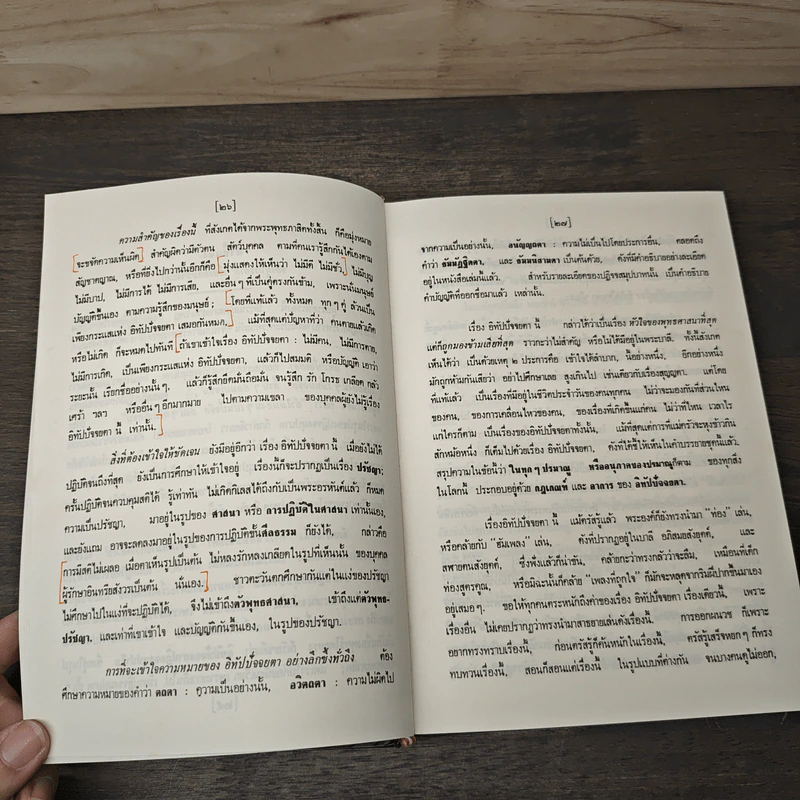 [๒๖]
ความสำคัญของเรื่องนี้ ที่สังเกตได้จากพระพุทธภาสิตทั้งสิ้น ก็คือมุ่งหมาย
จะขจัดความเห็นผิด สำคัญผิดว่ามีตัวตน สัตว์บุคคล ตามที่คนเรารู้สึกกันได้เองตาม
สัญชาตญาณ, หรือที่ยิ่งไปกว่านั้นอีกก็คือ มุ่งแสดงให้เห็นว่า ไม่มีดี ไม่มีชั่ว, ไม่มีบุญ
ไม่มีบาป, ไม่มีการได้ ไม่มีการเสีย, และอื่น ๆ ที่เป็นคู่ตรงกันข้าม, เพราะนั่นมนุษย์
บัญญัติขึ้นเอง ตามความรู้สึกของมนุษย์ ; โดยที่แท้แล้ว ทั้งหมด ทุก ๆ คู่ ล้วนเป็น
เพียงกระแสแห่ง อิทัปปัจจยตา เสมอกันหมด. แม้ที่สุดแต่ปัญหาที่ว่า คนตายแล้วเกิด
หรือไม่เกิด ก็จะหมดไปทันที ถ้าเขาเข้าใจเรื่อง อิทัปปัจจยตา : ไม่มีคน, ไม่มีการตาย,
ไม่มีการเกิด, เป็นเพียงกระแสแห่ง อิทัปปัจจยตา, แล้วก็ไปสมมติ หรือบัญญัติ เอาว่า
ระยะนั้น เรียกชื่ออย่างนั้น ๆ, แล้วก็รู้สึกยึดมั่นถือมั่น จนรู้สึก รัก โกรธ เกลียด กลัว
เศร้า ฯลฯ หรืออื่น ๆ อีกมากมาย ไปตามความเขลา ของบุคคลผู้ยังไม่รู้เรื่อง
อิทัปปัจจยตา นี้ เท่านั้น.
สิ่งที่ต้องเข้าใจให้ชัดเจน ยังมีอยู่อีกว่า เรื่อง อิทัปปัจจยตา นี้ เมื่อยังไม่ได้
ปฏิบัติจนถึงที่สุด ยังเป็นการศึกษาให้เข้าใจอยู่ เรื่องนี้ก็จะปรากฏเป็นเรื่อง ปรัชญา;
ครั้นปฏิบัติจนควบคุมสติได้ รู้เท่าทัน ไม่เกิดกิเลสได้ถึงกับเป็นพระอรหันต์แล้ว ก็หมด
ความเป็นปรัชญา, มาอยู่ในรูปของ ศาสนา หรือ การปฏิบัติในศาสนา เท่านั้นเอง,
และยังแถม อาจจะลดลงมาอยู่ในรูปของการปฏิบัติขั้นศีลธรรม ก็ยังได้, กล่าวคือ
การมีสติไม่เผลอ เมื่อตาเห็นรูปเป็นต้น, ไม่หลงรักหลงเกลียดในรูปที่เห็นนั้น ของบุคคล
ผู้รักษาอินทรียสังวรเป็นต้น นั่นเอง. ชาวตะวันตกศึกษากันแต่ในแง่ของปรัชญา
ไม่ศึกษาไปในแง่ที่จะปฏิบัติได้, จึงไม่เข้าถึงตัวพุทธศาสนา, เข้าถึงแต่ตัวพุทธ-
ปรัชญา. และเท่าที่เขาเข้าใจ และบัญญัติกันขึ้นเอง, ในรูปของปรัชญา.
การที่จะเข้าใจความหมายของ อิทัปปัจจยตา อย่างลึกซึ้งทั่วถึง ต้อง
ศึกษาความหมายของคำว่า ตถตา : ความเป็นอย่างนั้น, อวิตถตา : ความไม่ผิดไป
[๒๗]
จากความเป็นอย่างนั้น, อนัญญถตา : ความไม่เป็นไปโดยประการอื่น, ตลอดถึง
คำว่า ธัมมัฏฐิตตา, และ ธัมมนิยามตา เป็นต้นด้วย, ดังที่มีคำอธิบายอย่างละเอียด
อยู่ในหนังสือเล่มนี้แล้ว. สำหรับรายละเอียดของปฏิจจสมุปบาทนั้น, เป็นคำอธิบาย
คำบัญญัติที่ออกชื่อมาแล้ว เหล่านั้น.
เรื่อง อิทัปปัจจยตา นี้ กล่าวได้ว่าเป็นเรื่อง หัวใจของพุทธศาสนาที่สุด
แต่ก็ถูกมองข้ามเสียที่สุด ราวกะว่าไม่สำคัญ หรือไม่ได้มีอยู่ในพระบาลี. ทั้งนี้สังเกต
เห็นได้ว่า เป็นด้วยเหตุ ๒ ประการคือ เข้าใจได้ลำบาก, นี้อย่างหนึ่ง, อีกอย่างหนึ่ง
มักถูกห้ามกันเสียว่า อย่าไปศึกษาเลย สูงเกินไป เช่นเดียวกับเรื่องสุญญตา. แต่โดย
ที่แท้แล้ว เป็นเรื่องที่มีอยู่ในชีวิตประจำวันของคนทุกคน ไม่ว่าจะมองกันที่ส่วนไหน
ของคน, ของการเคลื่อนไหวของคน, ของเรื่องที่เกิดขึ้นแก่คน ไม่ว่าที่ไหน เวลาไร
แก่ใครก็ตาม เป็นเรื่องของอิทัปปัจจยตาทั้งนั้น, แม้ที่สุดแต่การที่แม่ครัวจะหุงข้าวกิน
สักหม้อหนึ่ง ก็เต็มไปด้วยเรื่อง อิทัปปัจจยตา, ดังที่ได้ชี้ให้เห็นในคำบรรยายชุดนี้แล้ว.
สรุปความในข้อนี้ว่า ในทุก ๆ ปรมาณู หรืออนุภาคของปรมาณูก็ตาม ของทุกสิ่ง
ในโลกนี้ ประกอบอยู่ด้วย กฎเกณฑ์ และ อาการ ของ อิทัปปัจจยตา.
เรื่องอิทัปปัจจยตา นี้ แม้ตรัสรู้แล้ว พระองค์ก็ยังทรงนำมา "ท่อง" เล่น,
หรือคล้ายกับ "ฮัมเพลง" เล่น, ดังที่ปรากฏอยู่ในบาลี อภิสมยสังยุตต์, และ
สฬายตนสังยุตต์, ซึ่งฟังแล้วก็น่าขัน, คล้ายกะว่าทรงกลัวว่าจะลืม, เหมือนที่เด็ก
ท่องสูตรคูณ, หรือมิฉะนั้นก็คล้าย "เพลงที่ถูกใจ" ก็มักจะหลุดจากริมฝีปากขึ้นมาเอง
อยู่เสมอ ๆ. ขอให้ทุกคนตระหนักถึงค่าของเรื่อง อิทัปปัจจยตา เรื่องเดียวนี้, เพราะ
เรื่องอื่น ไม่เคยปรากฏว่าทรงนำมาสาธยายเล่นดังเรื่องนี้. การออกผนวช ก็เพราะ
อยากทรงทราบเรื่องนี้, ก่อนตรัสรู้ก็ค้นหนักในเรื่องนี้. ตรัสรู้เสร็จหยก ๆ ก็ทรง
ทบทวนเรื่องนี้, สอนก็สอนแต่เรื่องนี้ ในรูปแบบที่ต่างกัน จนบางคนดูไม่ออก,